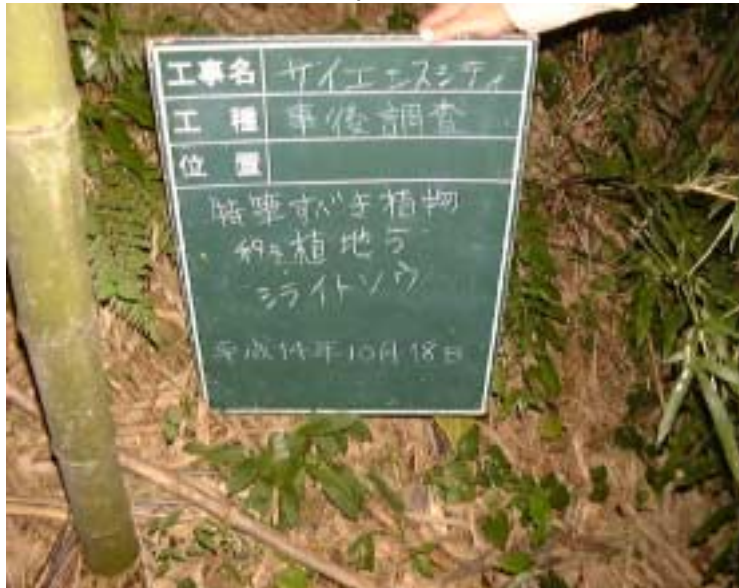 工事名 サイエンスシティ
工種 事後調査
位置
特筆すべき植物
移植地5
シライトソウ
平成14年10月18日